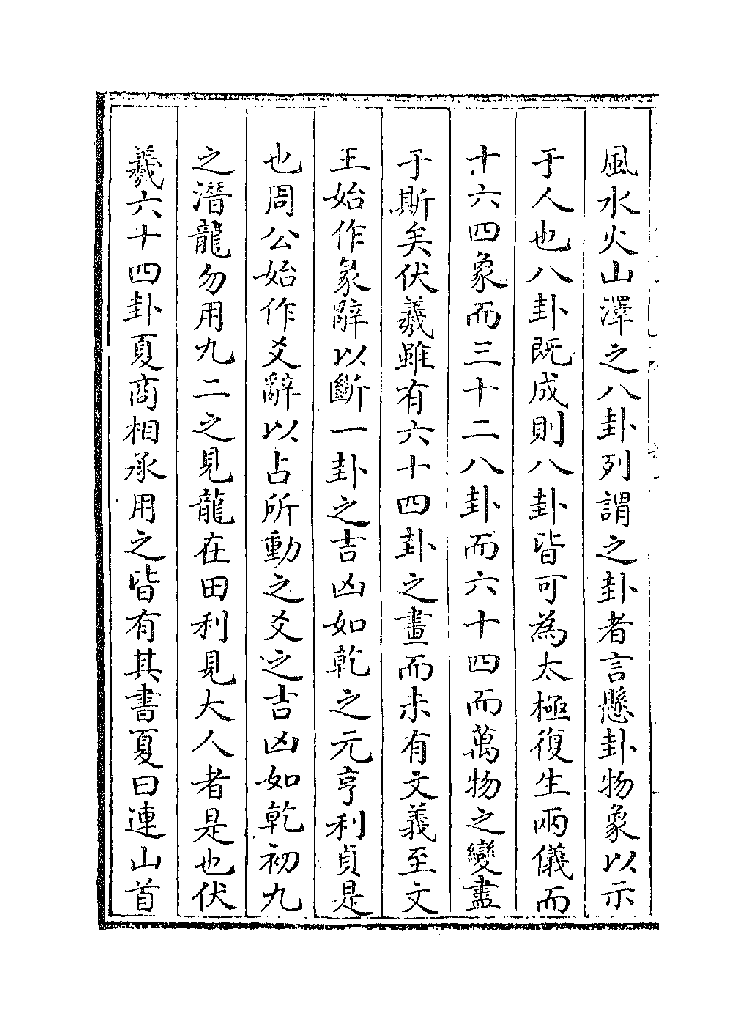 風水火山澤之八卦列謂之卦者言懸卦物象以示
于人也八卦既成則八卦皆可為太極復生兩儀而
十六四象而三十二八卦而六十四而萬物之變盡
于斯矣伏羲雖有六十四卦之畫而未有文義至文
王始作彖辭以斷一卦之吉凶如乾之元亨利貞是
也周公始作爻辭以占所動之爻之吉凶如乾初九
之潛龍勿用九二之見龍在田利見大人者是也伏
羲六十四卦夏商相承用之皆有其書夏曰連山首